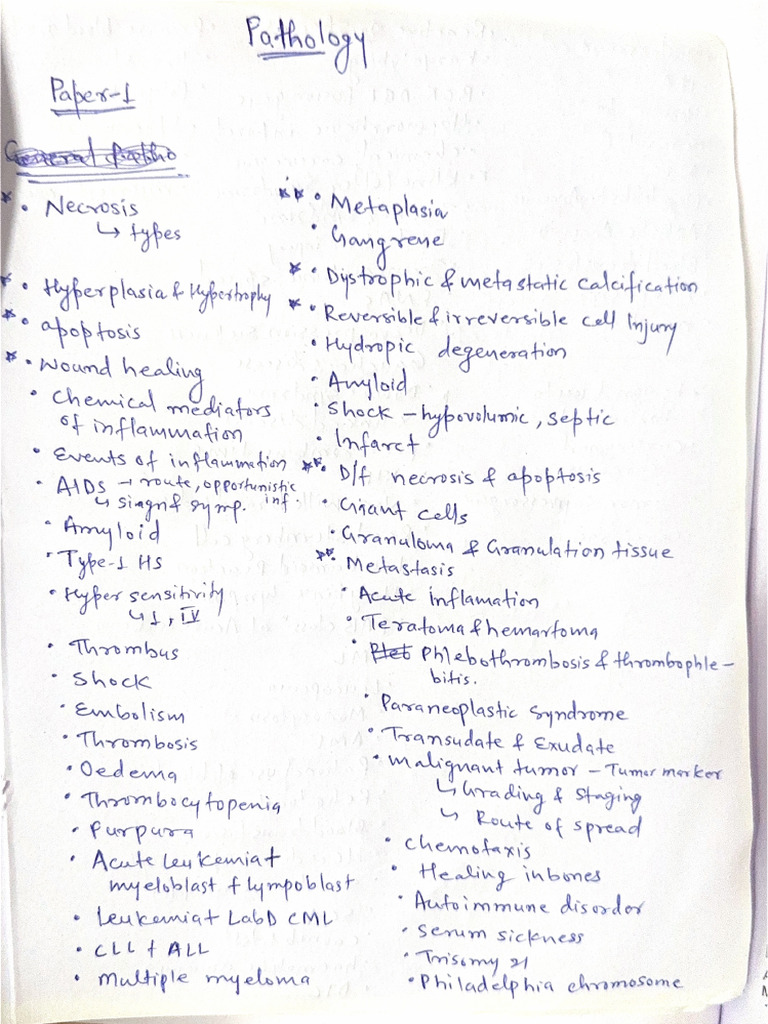 Pathology
Paper-1
General patho
* • Necrosis
↳ types
* • Hyperplasia & Hypertrophy
* • apoptosis
* • Wound healing
• Chemical mediators
of inflammation
• Events of inflammation
• AIDS → route, opportunistic inf.
↳ sign & symp.
• Amyloid
• Type-1 HS
• Hyper sensitivity
↳ 1, IV
• Thrombus
• Shock
• Embolism
• Thrombosis
• Oedema
• Thrombocytopenia
• Purpura
• Acute leukemia +
myeloblast + lympoblast
• Leukemia + LabD CML
• CLL + ALL
• Multiple myeloma
** • Metaplasia
• Gangrene
* • Dystrophic & metastatic calcification
* • Reversible & irreversible cell Injury
• Hydropic degeneration
• Amyloid
• Shock – hypovolumic, septic
• Infarct
** • D/f necrosis & apoptosis
• Giant cells
• Granuloma & Granulation tissue
** • Metastasis
• Acute inflamation
• Teratoma & hemartoma
• Phlebothrombosis & thrombophle-
bitis.
• Paraneoplastic syndrome
• Transudate & Exudate
• Malignant tumor – Tumor marker
↳ Grading & Staging
↳ Route of spread
• Chemotaxis
• Healing in bones
• Autoimmune disorder
• Serum sickness
• Trisomy 21
• Philadelphia chromosome